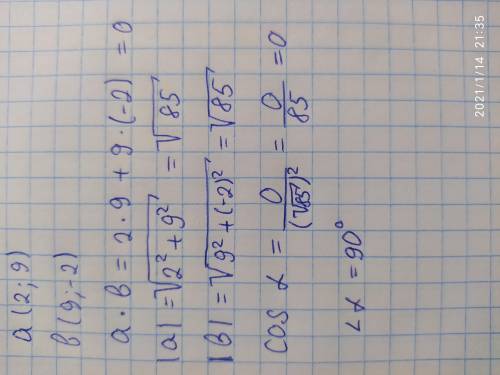 a(2; 9)
b(9; -2)
a · b = 2 · 9 + 9 · (-2) = 0
|a| = √(2² + 9²) = √85
|b| = √(9² + (-2)²) = √85
cos α = 0/(√85)² = 0/85 = 0
∠α = 90°
2021/1/14 21:35